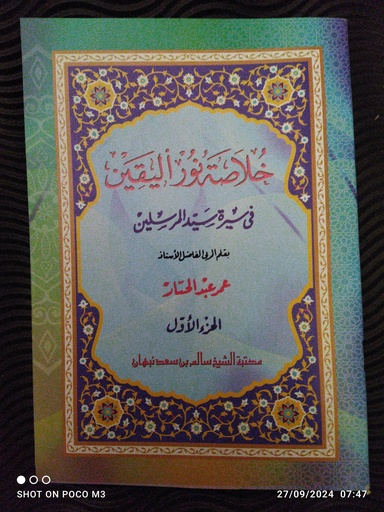 خُلَاصَة نُورُ الْيَقِيْن
فى سيرة سيد المرسلين
بقلم المربى الفاضل الأستاذ
عمر عبد الجبار
الجزء الأول
مكتبة الشيخ سالم بن سعد نبهان
SHOT ON POCO M3
27/09/2024 07:47